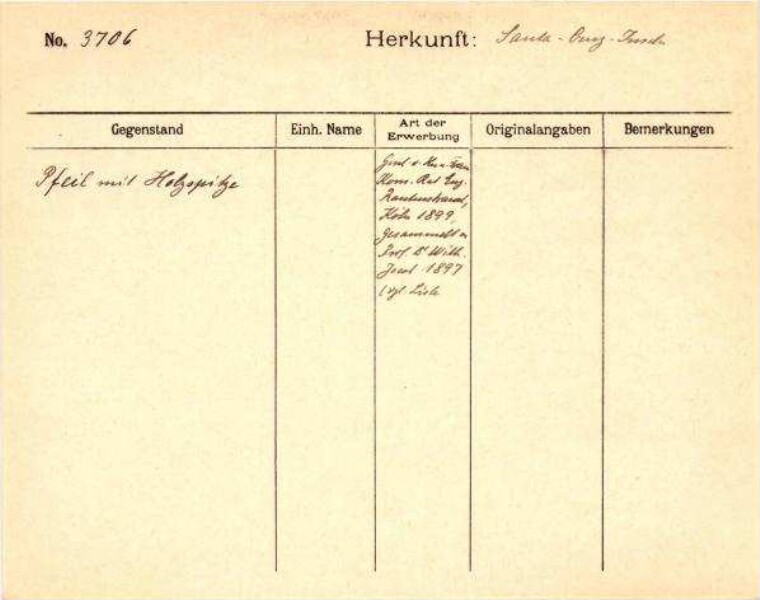 No. 3706
Herkunft: Santa-Cruz-Inseln
Gegenstand
Einh. Name
Art der
Erwerbung
Originalangaben
Bemerkungen
Pfeil mit Holzspitze
v. Frau
Kom. Rat Eug.
Rautenstrauch,
Köln 1899,
gesammelt v.
Prof. Dr Wilh.
Joest 1897
(vgl. Liste